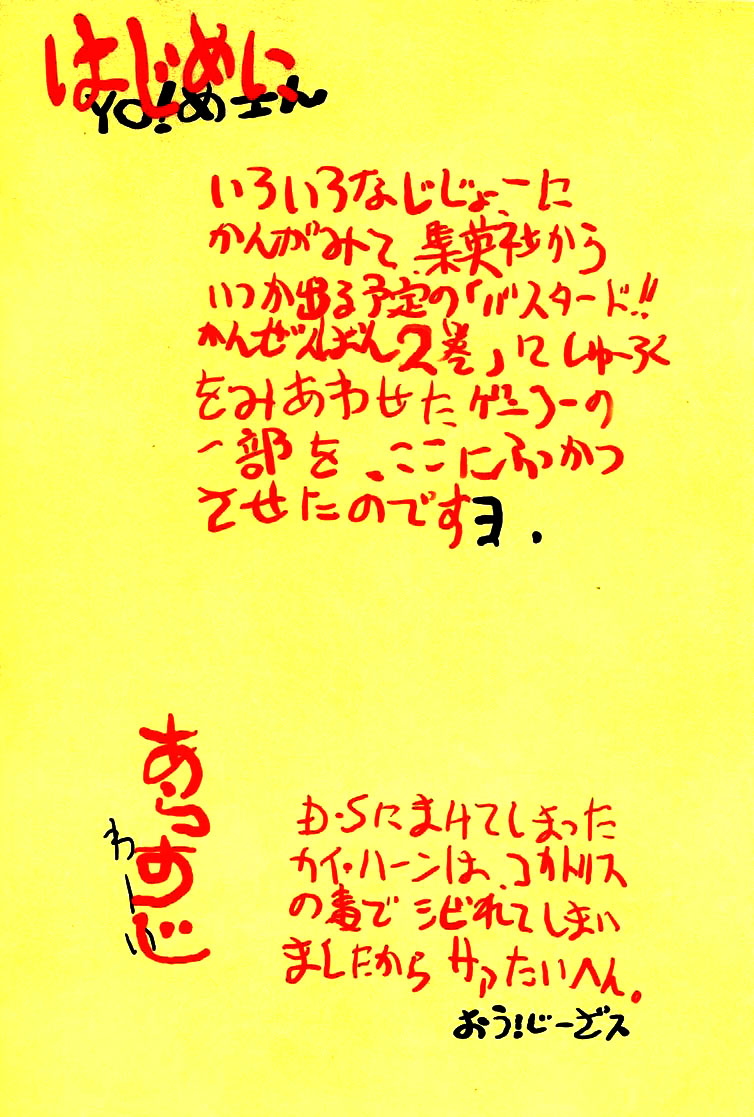 はじめに
YO!めェん
いろいろなじじょーに
かんがみて、集英社から
いつか出る予定の「バスタード!!
かんぜんばん2巻」にしゅーろく
をみあわせたゲンコーの
一部を、ここにふっかつ
させたのですヨ.
あらすじ
D・Sにまけてしまった
カイ・ハーンは、コカトリス
の毒でシビれてしまい
ましたからサァたいへん。
おう!じーざス